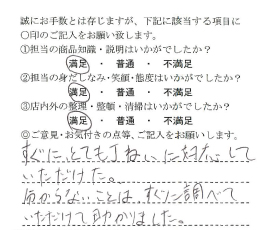 誠にお手数とは存じますが、下記に該当する項目に
〇印のご記入をお願い致します。
①担当の商品知識・説明はいかがでしたか?
満足 ・ 普通 ・ 不満足
②担当の身だしなみ・笑顔・態度はいかがですか?
満足 ・ 普通 ・ 不満足
③店内外の整理・整頓・清掃はいかがですか?
満足 ・ 普通 ・ 不満足
◎ご意見・お気付きの点等、ご記入をお願いします。
すぐに、とてもていねいに対応して
いただけた。
分からないことは、すぐに調べて
いただけて助かりました。